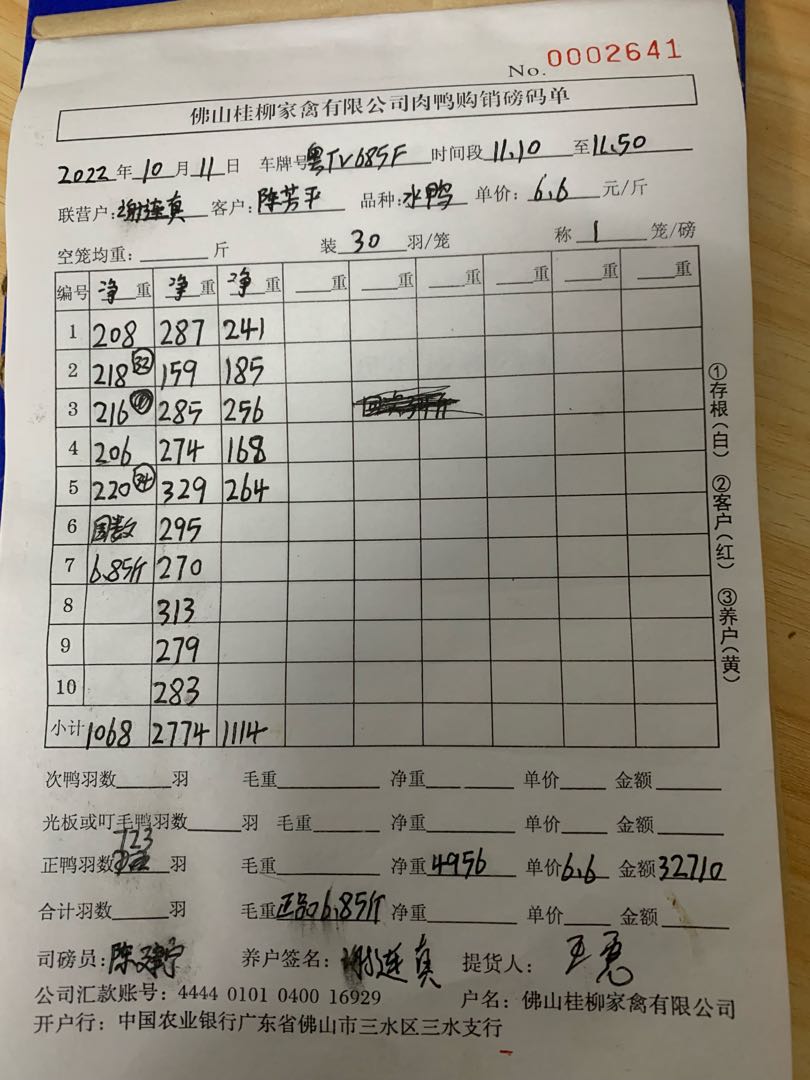 No. 0002641
佛山桂柳家禽有限公司肉鸭购销磅码单
2022年10月11日 车牌号粤TV685F 时间段11.10至11.50
联营户:谢连真 客户:陈芳平 品种:水鸭 单价:6.6元/斤
空笼均重:斤 装30羽/笼 称1笼/磅
编号 净重 净重 净重 重 重 重 重 重 重
1 208 287 241
2 218 32 159 185
3 216 285 256
4 206 274 168
5 220 34 329 264
6 295
7 6.85斤 270
8 313
9 279
10 283
小计 1068 2774 1114
①存根(白) ②客户(红) ③养户(黄)
次鸭羽数羽 毛重 净重 单价 金额
光板或叮毛鸭羽数羽 毛重 净重 单价 金额
正鸭羽数723羽 毛重 净重4956 单价6.6 金额32710
合计羽数羽 毛重正品6.85斤 净重 单价 金额
司磅员:陈 养户签名:谢连真 提货人:
公司汇款账号:4444 0101 0400 16929 户名:佛山桂柳家禽有限公司
开户行:中国农业银行广东省佛山市三水区三水支行